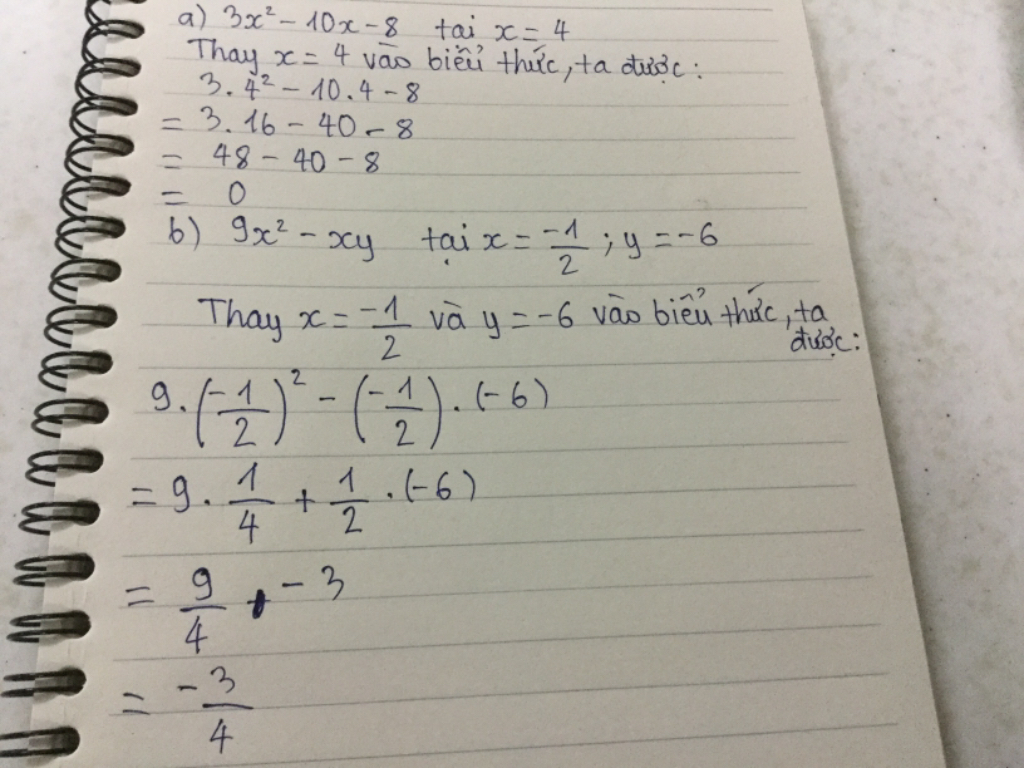 a) 3x² - 10x - 8 tại x = 4
Thay x = 4 vào biểu thức, ta được:
3.4² - 10.4 - 8
= 3.16 - 40 - 8
= 48 - 40 - 8
= 0
b) 9x² - xy tại x = -1/2 ; y = -6
Thay x = -1/2 và y = -6 vào biểu thức, ta
được:
9.(-1/2)² - (-1/2).(-6)
= 9.1/4 + 1/2.(-6)
= 9/4 - 3
= -3/4